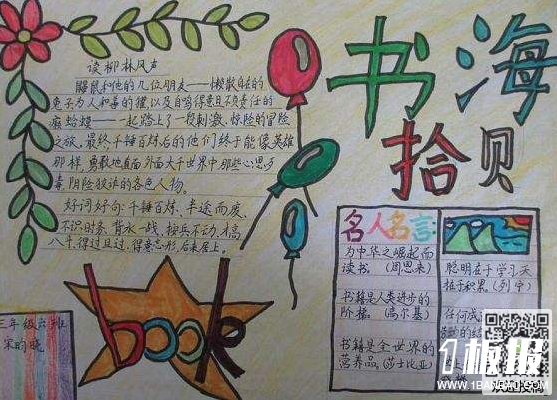 书海
拾贝
读柳林风声
鼹鼠和他的几位朋友——懒散自在的
兔子为人和善的獾,以及自鸣得意且不负责任的
癞蛤蟆——一起踏上了一段刺激、惊险的冒险
之旅,最终千锤百炼后的他们终于能像英雄
那样,勇敢地直面外面大千世界中那些心思歹
毒、阴险狡诈的各色人物。
好词好句:千锤百炼、半途而废、
不识时务、背水一战、按兵不动、才高
八斗、得过且过、得意忘形、后来居上。
名人名言:
为中华之崛起而
读书。(周恩来)
书籍是人类进步的
阶梯。(高尔基)
书籍是全世界的
营养品。(莎士比亚)
聪明在于学习,天
才在于积累。(列宁)
任何成
book
三年级六班
1板报
WWW.1BANBAO.COM